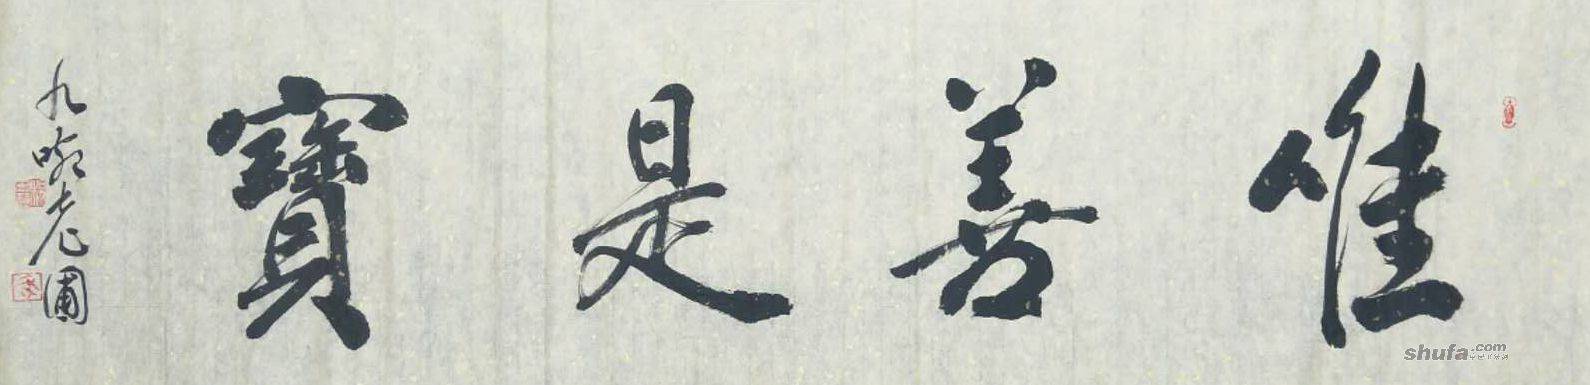 惟善是寶
九畹老圃
shufa.com